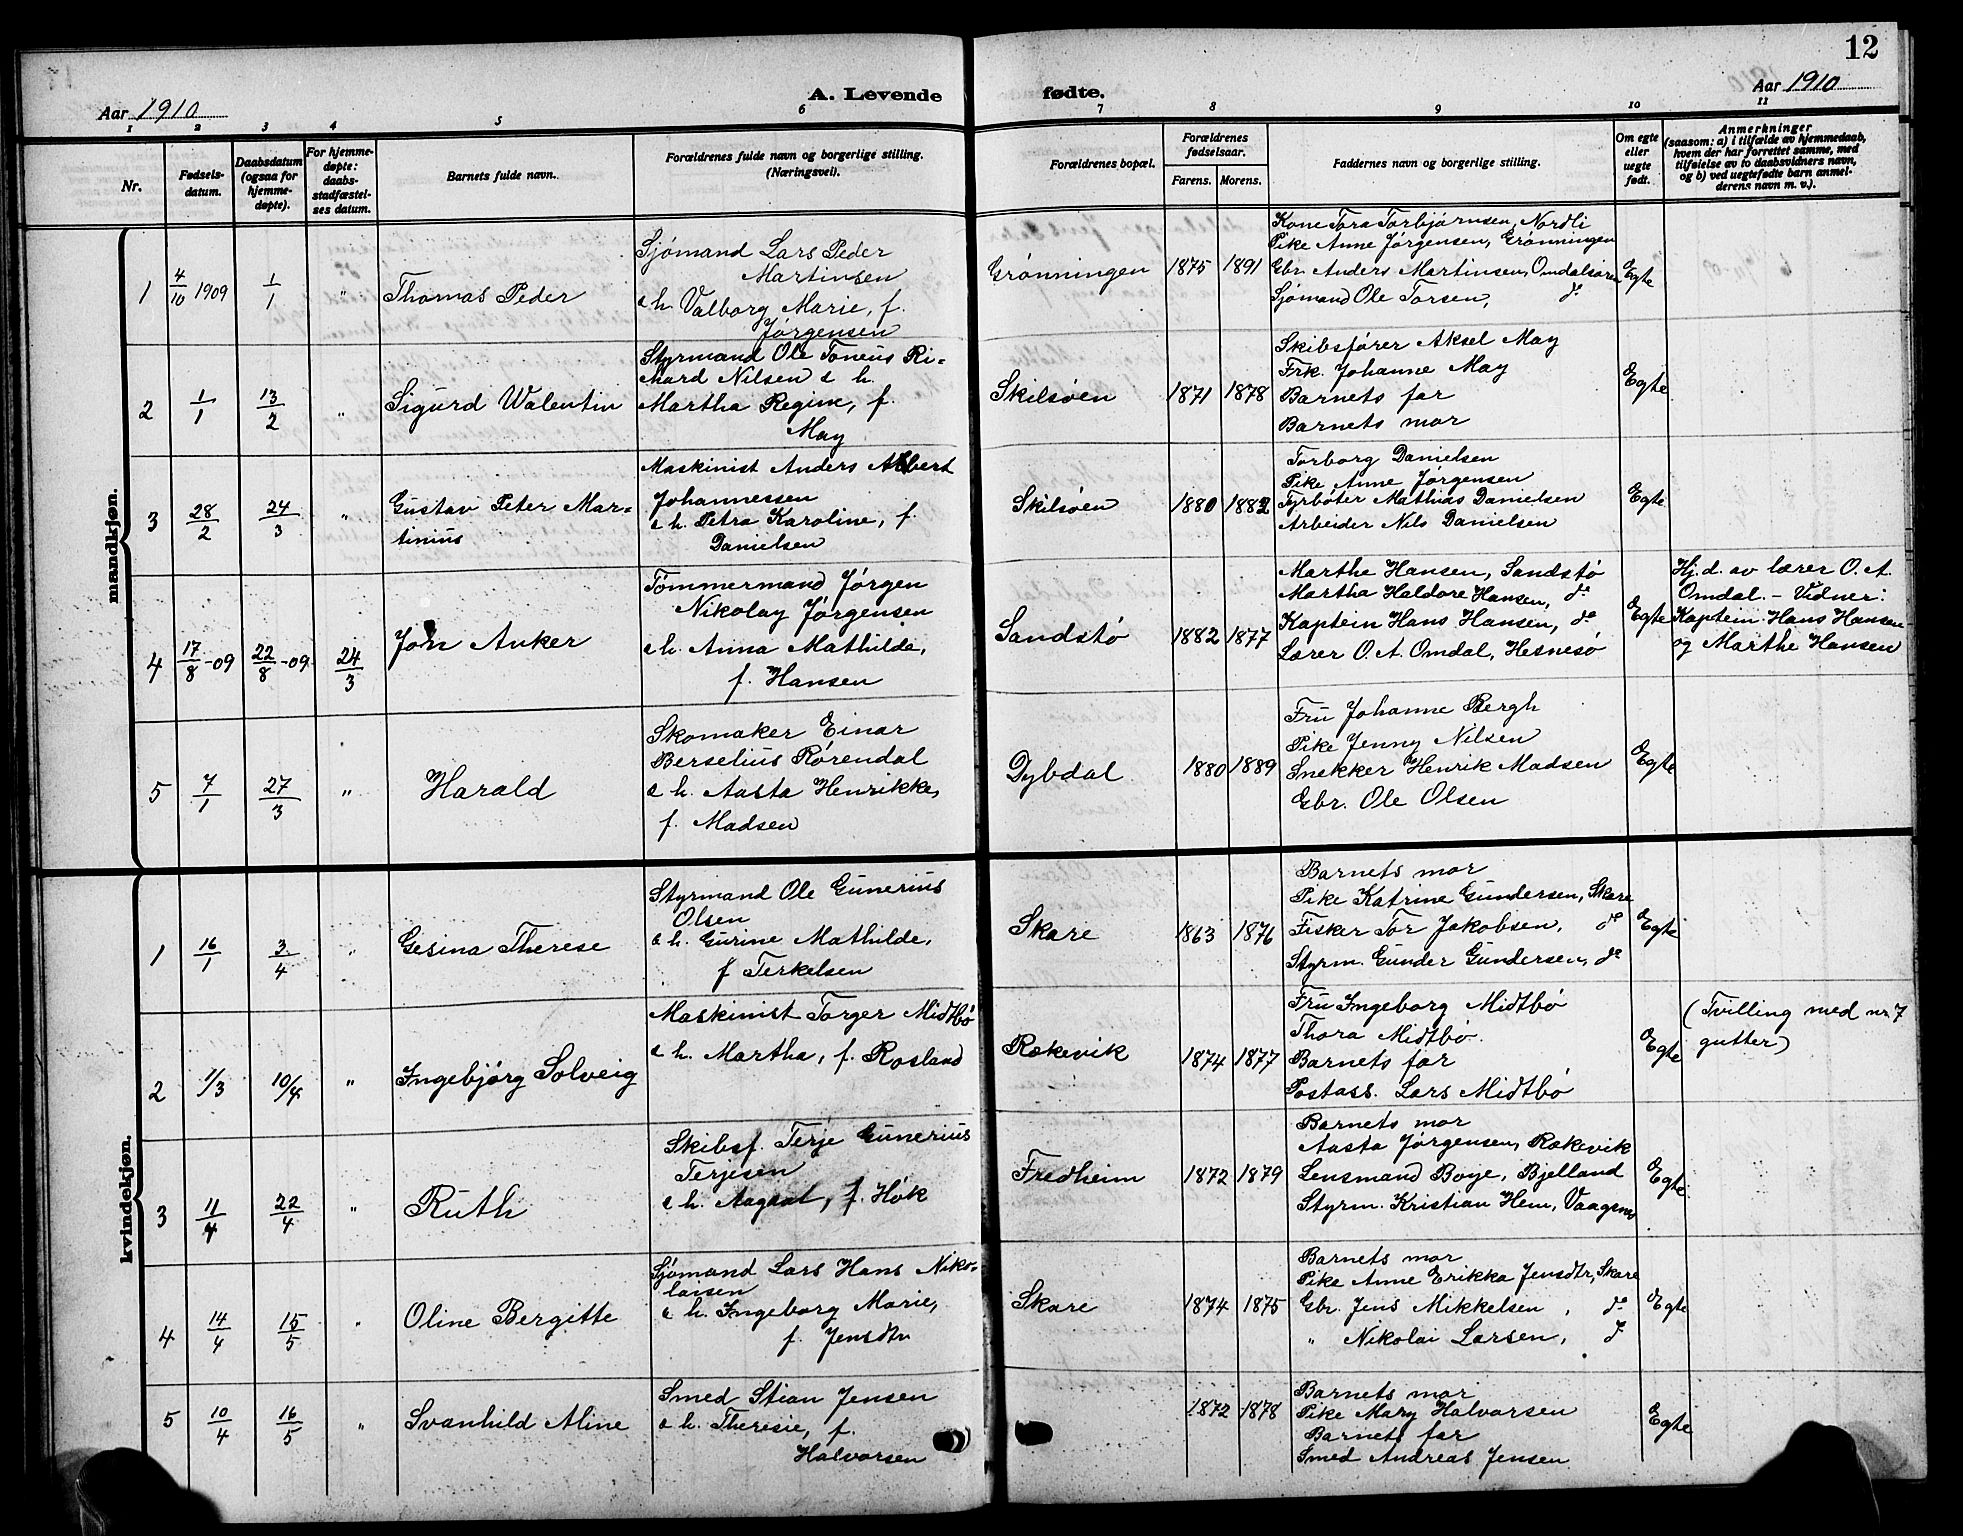 12
Aar 1910
A. Levende fødte.
Aar 1910
1 2 3 4 5 6 7 8 9 10 11
Nr.
Fødsels-
datum.
Daabsdatum
(ogsaa for
hjemme-
døpte).
For hjemme-
døpte:
daabs-
stadfæstel-
ses datum.
Barnets fulde navn.
Forældrenes fulde navn og borgerlige stilling.
(Næringsvei).
Forældrenes bopæl.
Forældrenes
fødselsaar.
Farens. Morens.
Faddernes navn og borgerlige stilling.
Om egte
eller
uegte
født.
Anmerkninger
(saasom: a) i tilfælde av hjemmedaab,
hvem der har forrettet samme, med
tilføielse av to daabsvidners navn,
og b) ved uegtefødte barn anmel-
derens navn m. v.).
mandkjøn.
1
4/10 1909
1/1
"
Thomas Peder
Sjømand Lars Peder
Martinsen
& h. Valborg Marie, f.
Jørgensen
Grønningen
1875 1891
Kone Tora Torbjørnsen, Nordli
Pike Anne Jørgensen, Grønningen
Gbr. Anders Martinsen, Omdalsøren
Sjømand Ole Torsen, do
Egte
2
1/1
13/2
"
Sigurd Walentin
Styrmand Ole Toneus Ri-
khard Nilsen & h.
Martha Regine, f.
May
Skilsøen
1871 1878
Skibsfører Aksel May
Frk. Johanne May
Barnets far
Barnets mor
Egte
3
28/2
24/3
"
Gustav Peter Mar-
tinius
Maskinist Anders Albert
Johannessen
& h. Petra Karoline, f.
Danielsen
Skilsøen
1880 1882
Torborg Danielsen
Pike Anne Jørgensen
Fyrbøter Mathias Danielsen
Arbeider Nils Danielsen
Egte
4
17/8-09
22/8-09
24/3
John Anker
Tømmermand Jørgen
Nikolay Jørgensen
& h. Anna Mathilde,
f. Hansen
Sandstø
1882 1877
Marthe Hansen, Sandstø
Martha Haldore Hansen, do
Kaptein Hans Hansen, do
Lærer O. A. Omdal, Hesnesø
Egte
Hj. d. av lærer O. A.
Omdal. - Vidner:
Kaptein Hans Hansen
og Marthe Hansen
5
7/1
27/3
"
Harald
Skomaker Einar
Berselius Rørendal
& h. Aasta Henrikke,
f. Madsen
Dybdal
1880 1889
Fru Johanne Bergh
Pike Jenny Nilsen
Snekker Henrik Madsen
Gbr. Ole Olsen
Egte
kvindekjøn.
1
16/1
3/4
"
Gesina Therese
Styrmand Ole Gunerius
Olsen
& h. Gurine Mathilde,
f Terkelsen
Skare
1863 1876
Barnets mor
Pike Katrine Gundersen, Skare
Fisker Tor Jakobsen, do
Styrm. Gunder Gundersen, do
Egte
2
1/3
10/4
"
Ingebjørg Solveig
Maskinist Torger Midtbø
& h. Martha, f. Rosland
Rækevik
1874 1877
Fru Ingeborg Midtbø
Thora Midtbø.
Barnets far
Postass. Lars Midtbø
Egte
(Tvilling med nr 7
gutter)
3
11/4
22/4
"
Ruth
Skibsf. Terje Gunerius
Terjesen
& h. Aagaat, f. Høk
Fredheim
1872 1879
Barnets mor
Aasta Jørgensen, Rækevik
Lensmand Boye, Bjelland
Styrm. Kristian Hem, Vaagsnes
Egte
4
14/4
15/5
"
Oline Bergitte
Sjømand Lars Hans Niko-
laisen
& h. Ingeborg Marie,
f. Jensdtr
Skare
1874 1875
Barnets mor
Pike Anne Erikka Jensdtr, Skare
Gbr. Jens Mikkelsen, do
" Nikolai Larsen, do
Egte
5
10/4
16/5
"
Svanhild Aline
Smed Stian Jensen
& h. Theresie, f.
Halvorsen
1872 1878
Barnets mor
Pike Mary Halvorsen
Barnets far
Smed Andreas Jensen
Egte